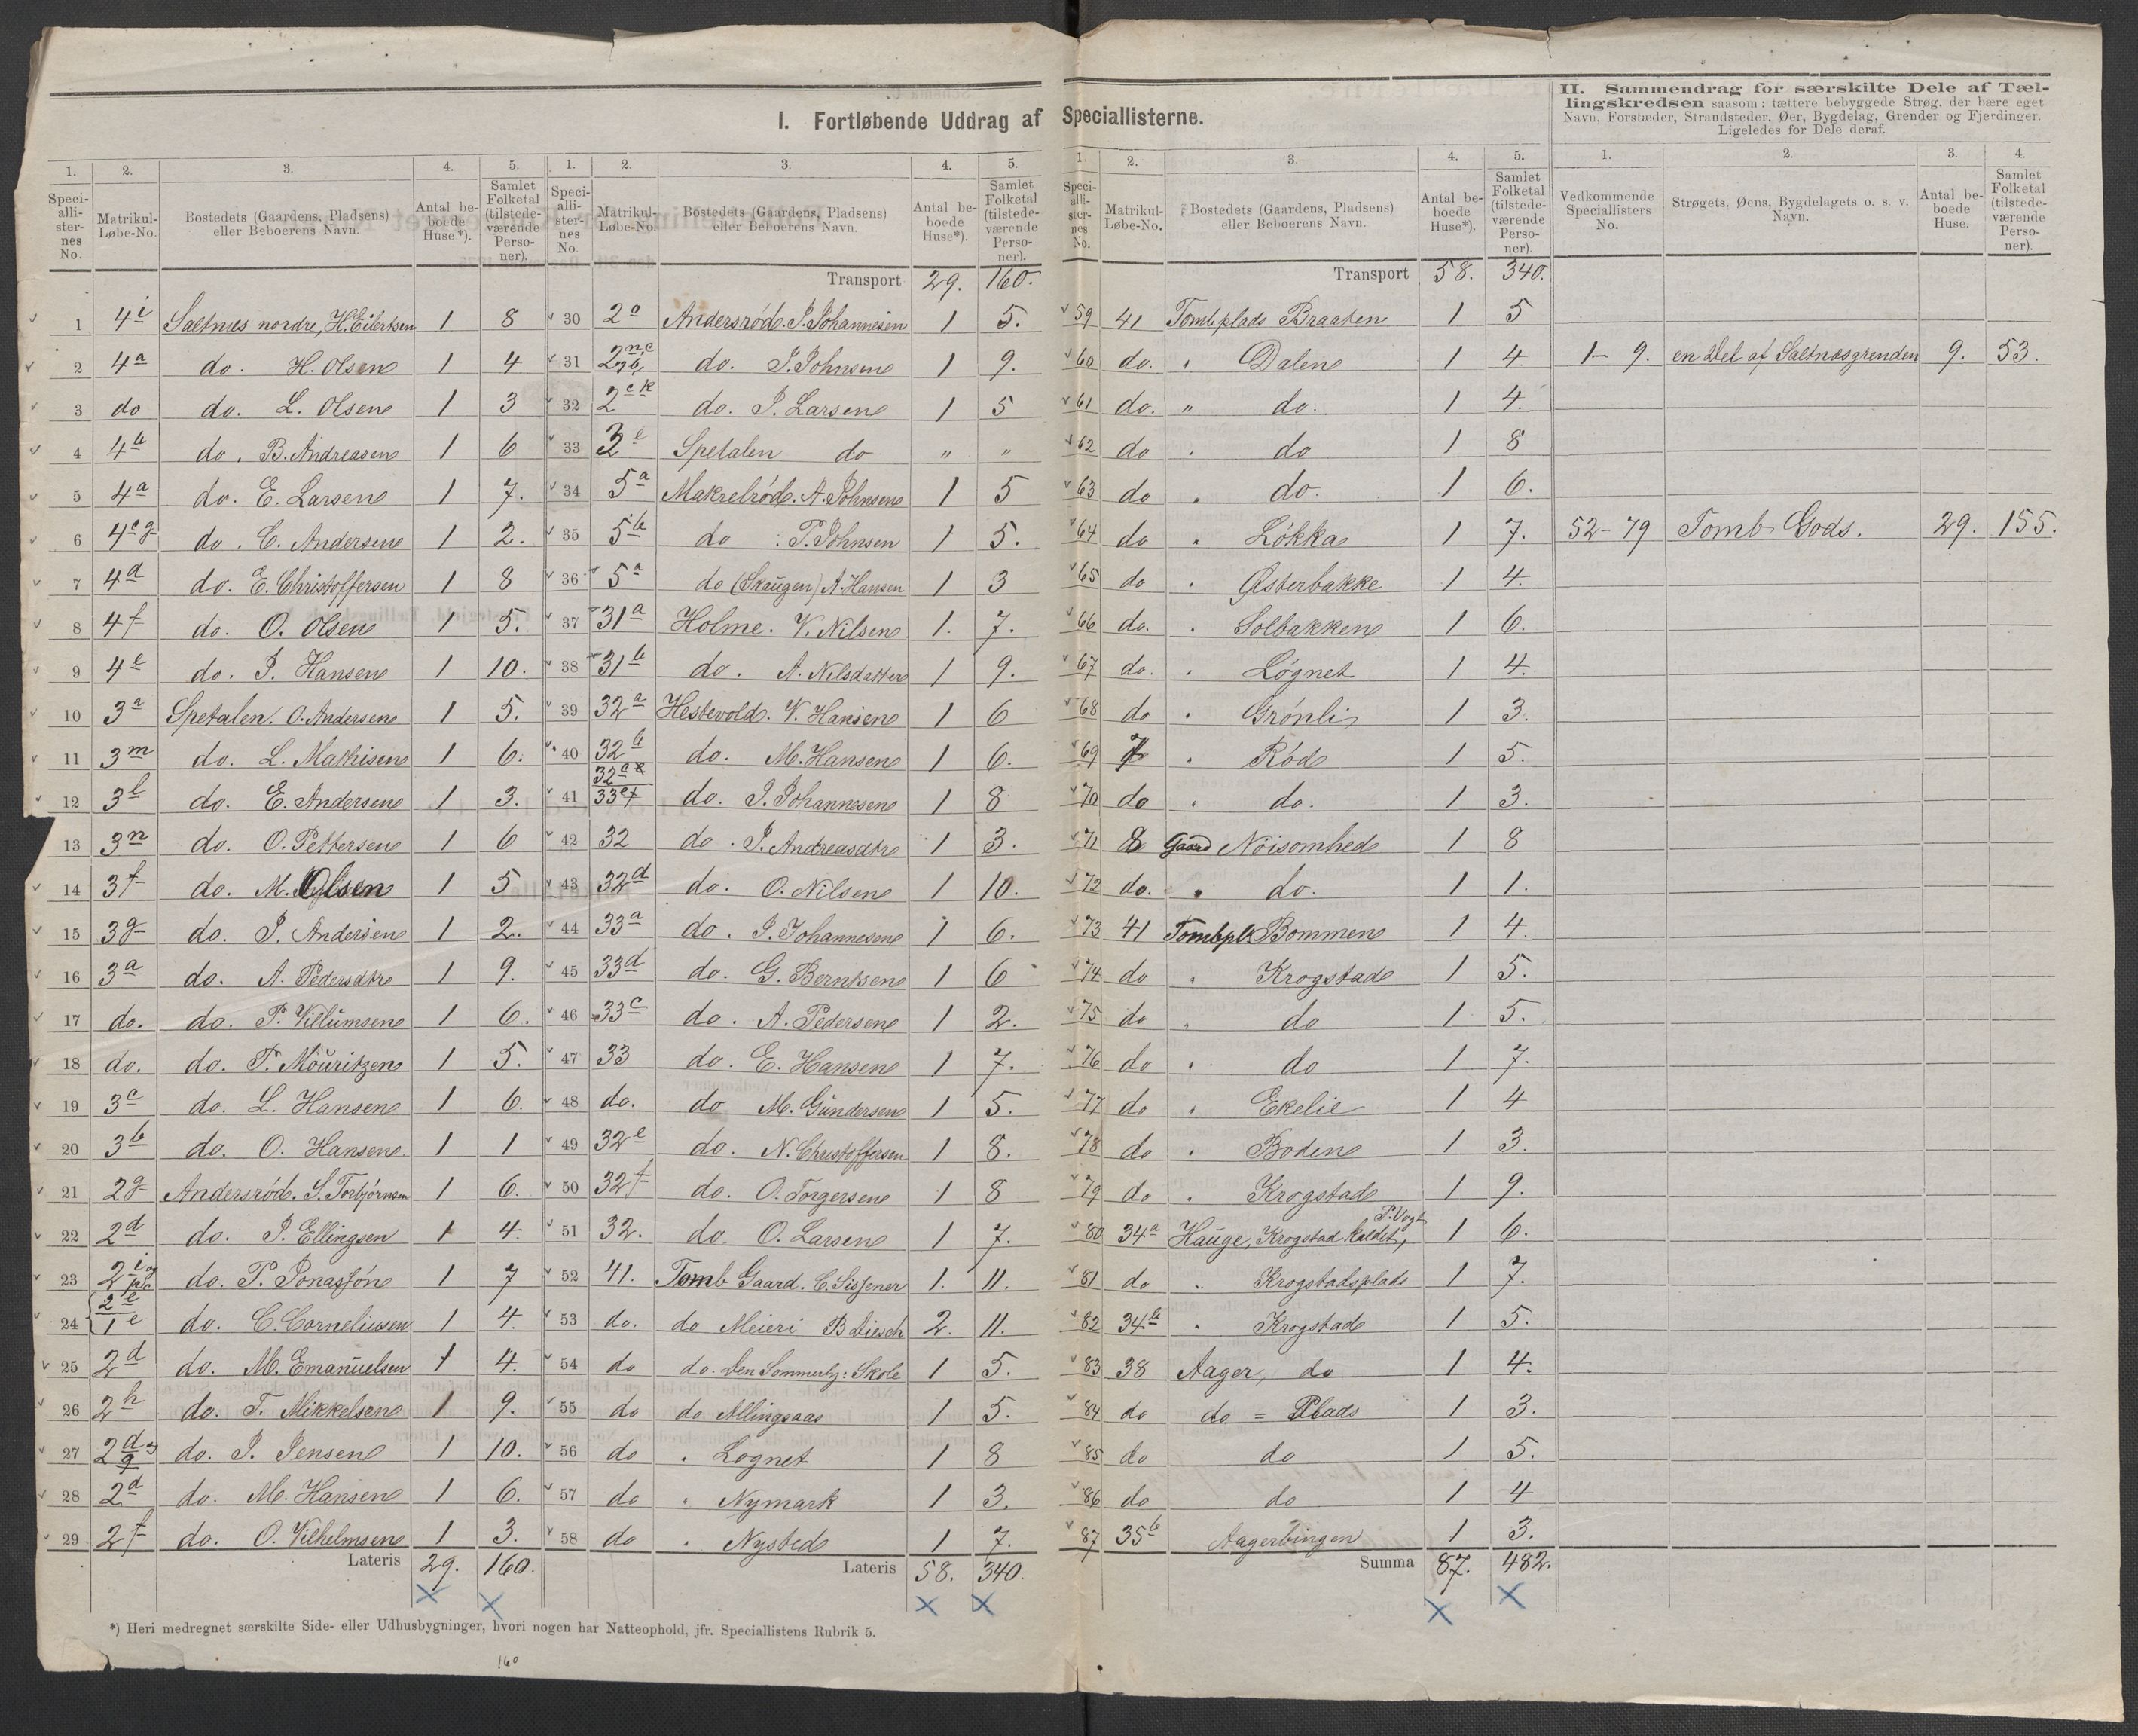 I. Fortløbende Uddrag af Speciallisterne.
1. 2. 3. 4. 5.
Speciallisternes No. Matrikul-Løbe-No. Bostedets (Gaardens, Pladsens) eller Beboerens Navn. Antal beboede Huse*). Samlet Folketal (tilstedeværende Personer).
1 4i Saltnes nordre, H. Eilertsen 1 8
2 4a do. H. Olsen 1 4
3 do do. L. Olsen 1 3
4 4b do. B. Andreasen 1 6
5 4a do. E. Larsen 1 7.
6 4c g do. C. Andersen 1 2.
7 4d do. E. Christoffersen 1 8
8 4f do. O. Olsen 1 5.
9 4e do. J. Hansen 1 10.
10 3a Spetalen. O. Andersen 1 5.
11 3m do. L. Mathisen 1 6.
12 3l do. E. Andersen 1 3.
13 3n do. O. Pettersen 1 6
14 3f do. M. Olsen 1 5
15 3g do. J. Andersen 1 2.
16 3a do. A. Pedersdtr 1 9.
17 do. do. P. Villumsen 1 6.
18 do. do. T. Mouritzen 1 5.
19 3c do. L. Hansen 1 6.
20 3b do. O. Hansen 1 1
21 2g Andersrød. S. Torbjørnsen 1 6.
22 2d do. J. Ellingsen 1 4.
23 2i do. P. Jonassøn 1 7
24 2e 1e do. C. Corneliussen 1 4.
25 2d do. M. Emanuelsen 1 4.
26 2h do. T. Mikkelsen 1 9.
27 2d og q do. J. Jensen 1 10.
28 2d do. M. Hansen 1 6.
29 2f do. O. Vilhelmsen 1 3.
Lateris 29. 160.
*) Heri medregnet særskilte Side- eller Udhusbygninger, hvori nogen har Natteophold, jfr. Speciallistens Rubrik 5.
160
1. 2. 3. 4. 5.
Speciallisternes No. Matrikul-Løbe-No. Bostedets (Gaardens, Pladsens) eller Beboerens Navn. Antal beboede Huse*). Samlet Folketal (tilstedeværende Personer).
Transport 29. 160.
30 2o Andersrød. J. Johannesen 1 5.
31 2 do. J. Johnsen 1 9.
32 2c k do. J. Larsen 1 5
33 3e Spetalen do " "
34 5a Makrelrød. A. Johnsen 1 5
35 5b do : P. Johnsen 1 5.
36 5a do (Skaugen) A. Hansen 1 3
37 31a Holme. V. Nilsen 1. 7.
38 31b do. A. Nilsdatter 1 9.
39 32a Hestevold. V. Hansen 1 6
40 32b do. M. Hansen 1 6.
41 32c 33 do. J. Johannesen 1 8
42 32 do. J. Andreasdtr 1 3.
43 32d do. O. Nilsen 1 10.
44 33a do. J. Johannesen 1 6.
45 33d do. G. Berntsen 1 6
46 33c do. A. Pedersen 1 2.
47 33 do. E. Hansen 1 7.
48 do. do M. Gundersen 1 5.
49 32e do. N. Christoffersen 1 8.
50 32f do. O. Torgersen 1 8
51 32. do. O. Larsen 1 7.
52 41. Tomb Gaard. C. Sissener 1. 11.
53 do. do Meieri B Diesch 2. 11.
54 do do. Den Sommerly: Skole 1 5.
55 do do Allingsaas 1 5.
56 do " Løgnet 1 8
57 do " Nymark 1 3.
58 do " Nysted 1 7.
Lateris 58. 340.
1 2. 3. 4. 5.
Speciallisternes No. Matrikul-Løbe-No. Bostedets (Gaardens, Pladsens) eller Beboerens Navn. Antal beboede Huse*). Samlet Folketal (tilstedeværende Personer).
Transport 58. 340.
59 41 Tombplads Braaten 1 5
60 do. " Dalen 1 4
61 do. " do. 1 4.
62 do " do 1 8
63 do " do. 1 6.
64 do " Løkka 1 7.
65 do " Østerbakke 1 4.
66 do. " Solbakken 1 6.
67 do. " Løgnet 1 4.
68 do " Grønli 1 3.
69 7 " Rød 1 5.
70 do " do. 1 3.
71 8 Gaard Nøisomhed 1 8
72 do. " do. 1 1.
73 41 Tombpl. Bommen 1 4.
74 do " Krogstad 1 5.
75 do " do 1 5.
76 do " do 1 7.
77 do " Ekelie 1 4
78 do " Boden 1 3.
79 do " Krogstad 1 9.
80 34a Hauge, Krogstad kaldet, P. Vogt 1 6.
81 do " Krogstadsplads 1 7.
82 34b " Krogstad 1 5.
83 38 Aager, do 1 4.
84 do do = Plads 1 3.
85 do do 1 5.
86 do do 1 4
87 35b Aagerbingen 1 3.
Summa 87. 482.
II. Sammendrag for særskilte Dele af Tællingskredsen saasom: tættere bebyggede Strøg, der bære eget Navn, Forstæder, Strandsteder, Øer, Bygdelag, Grender og Fjerdinger. Ligeledes for Dele deraf.
1. 2. 3. 4.
Vedkommende Speciallisters No. Strøgets, Øens, Bygdelagets o. s. v. Navn. Antal beboede Huse. Samlet Folketal (tilstedeværende Personer).
1-9. en Del af Saltnesgrenden 9. 53.
52-79 Tomb Gods. 29. 155.